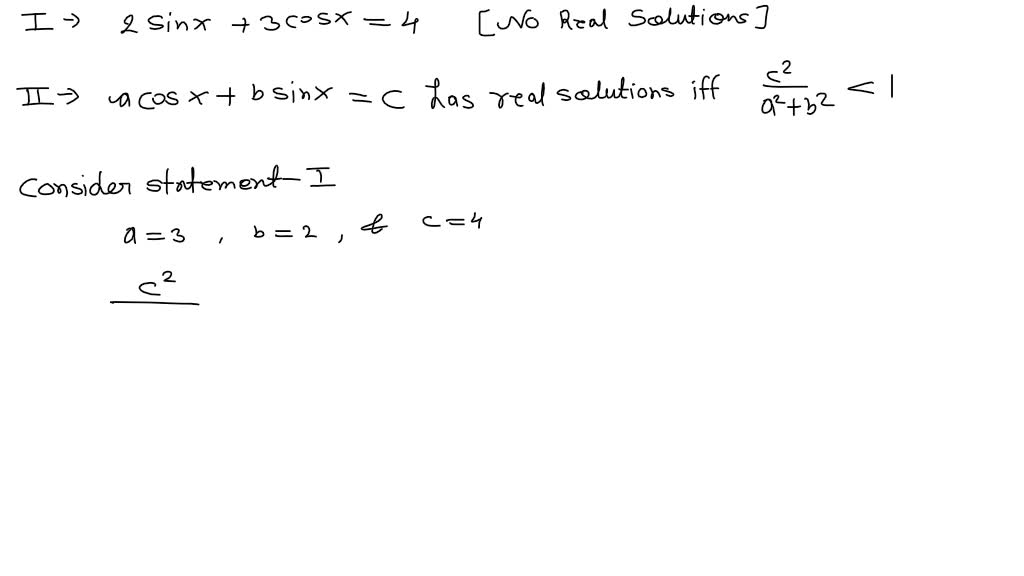 I → 2 sinx + 3cosx = 4 [No Real Solutions]
II → a cos x + b sinx = c has real solutions iff c²/(a²+b²) < 1
Consider statement-I
a = 3 , b = 2 , & c = 4
c²